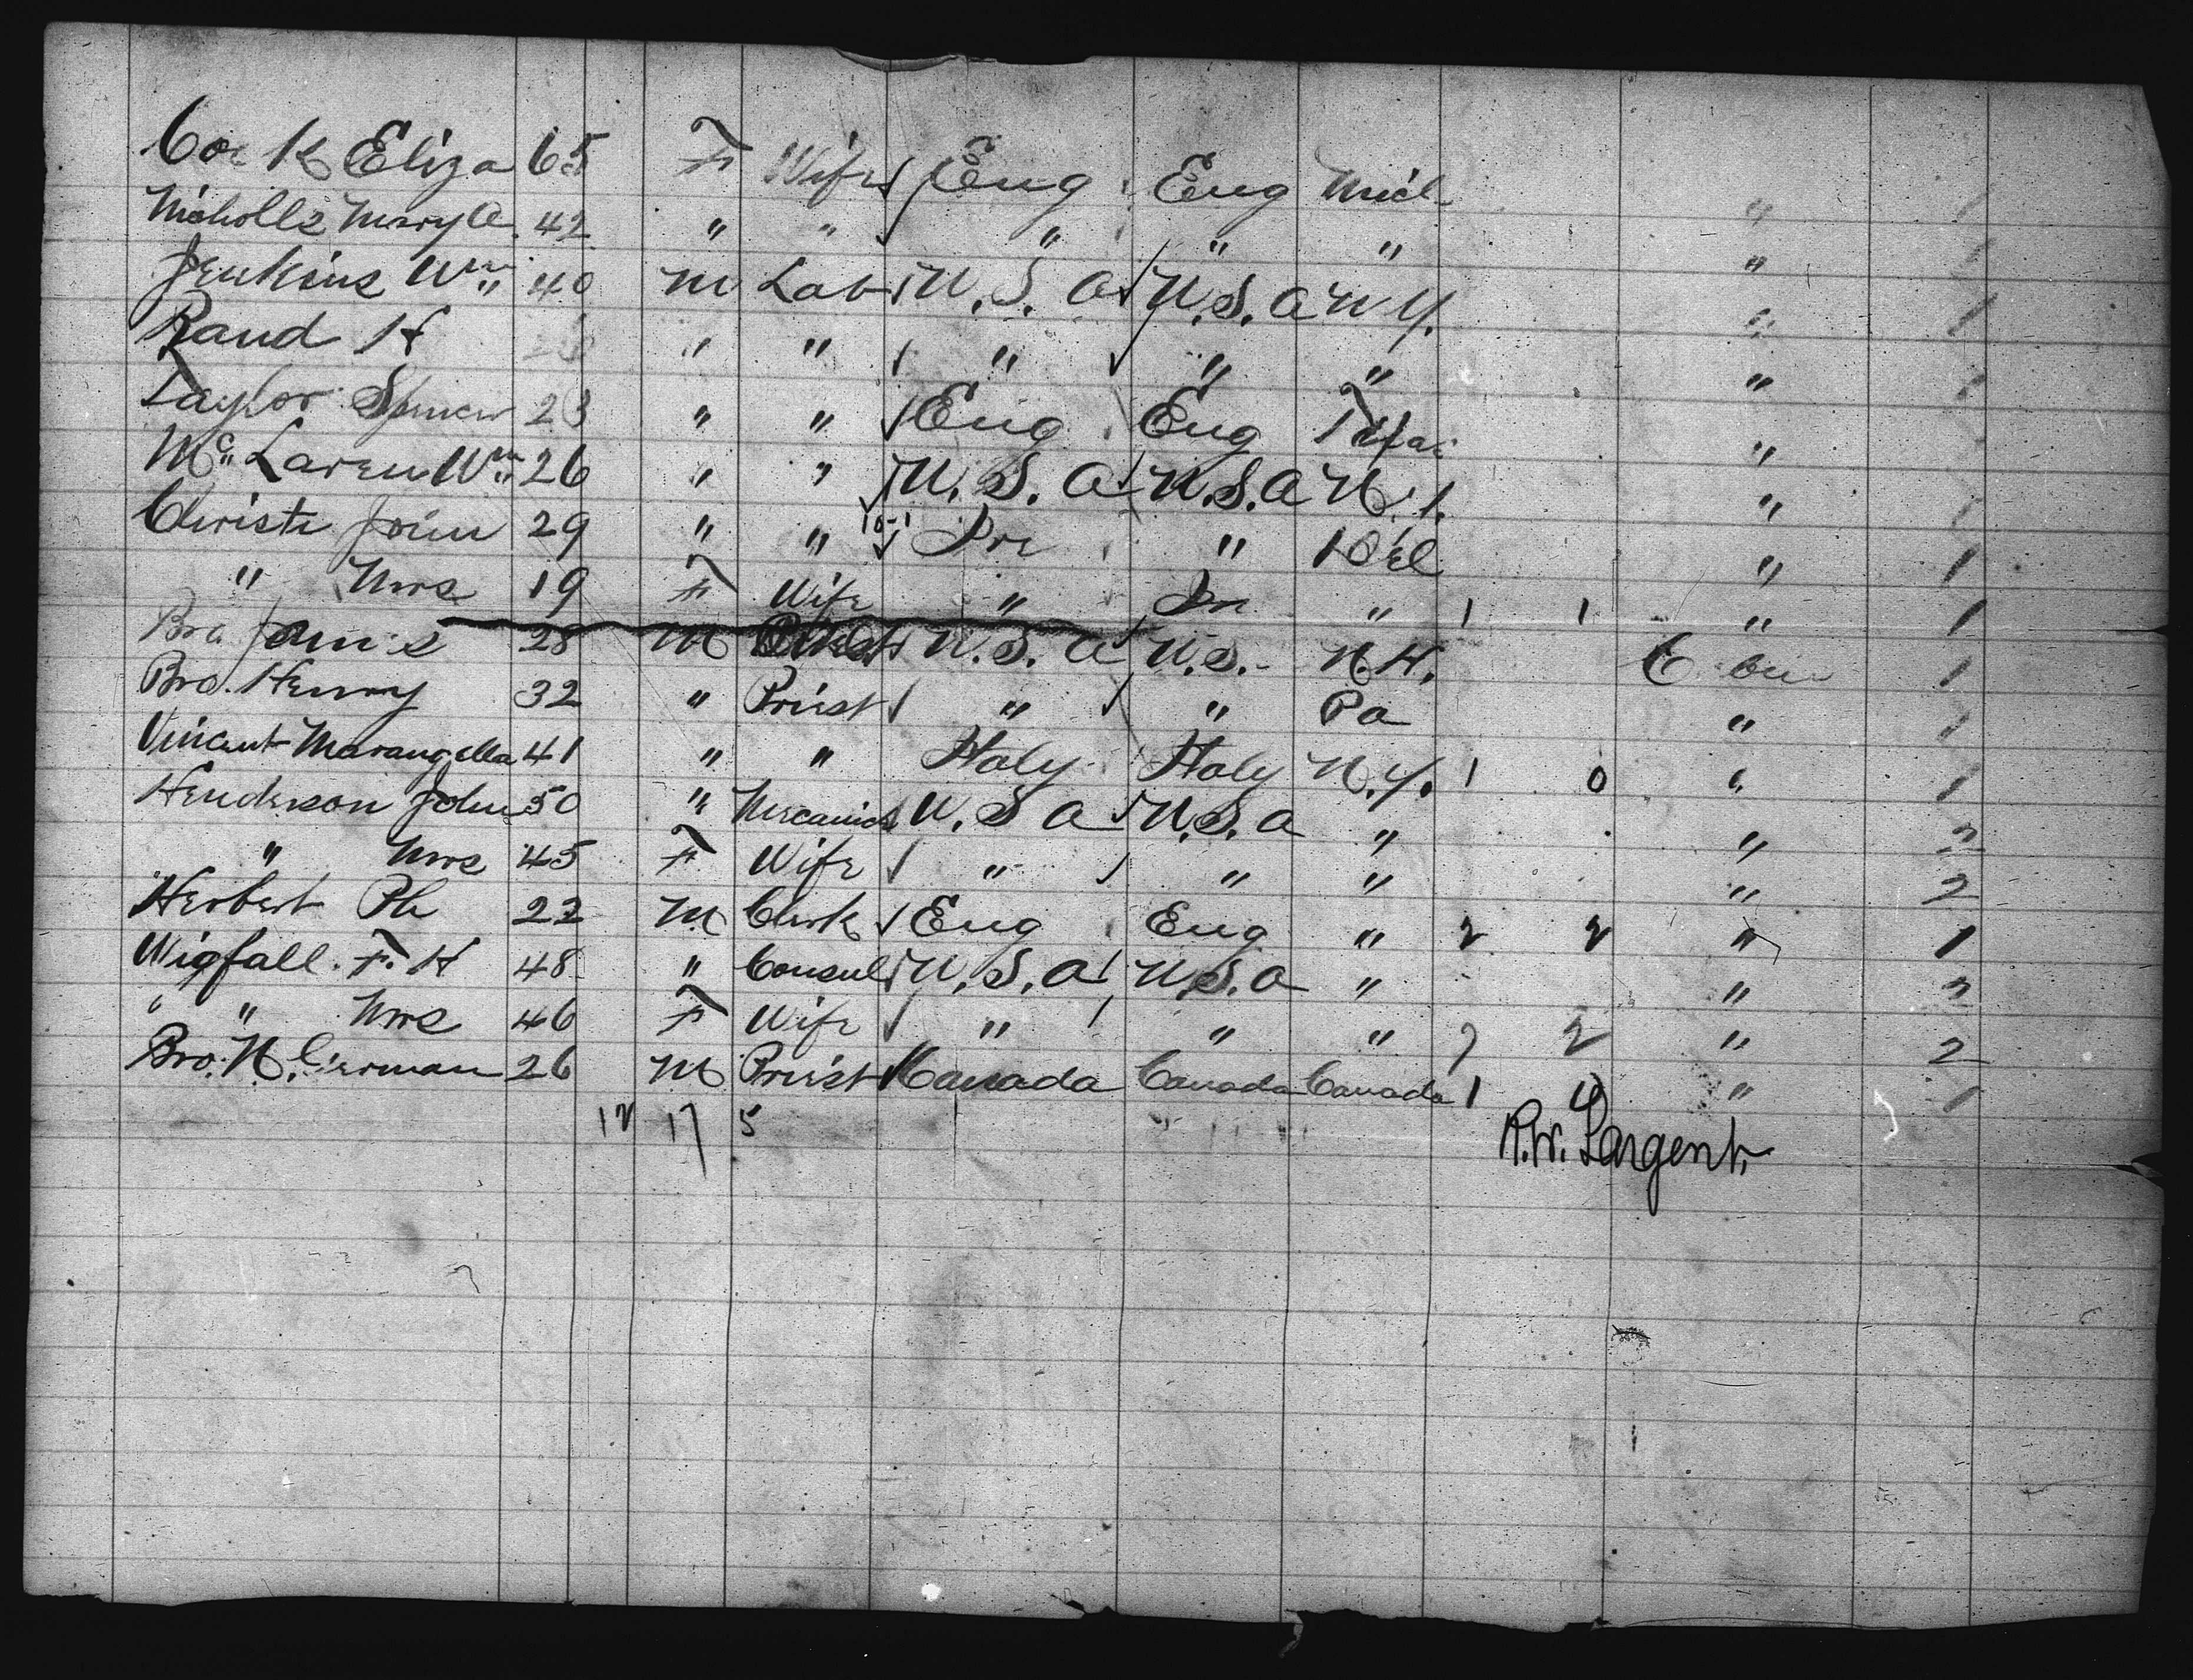 Cock Eliza 65 F Wife Eng Eng Mich " 1
Nicholls Mary A. 42 " " " " " " 1
Jenkins Wm 40 M Lab U.S.A U.S.A N Y. " 1
Rand H " " " " " " 1
Taylor 23 " " Eng Eng " 1
Mc Laren Wm 26 " " U.S.A U.S.A " 1
Christi John 29 " " Ire " Del " 1
" Mrs 19 F Wife " Ire " 1 1 " 1
Bro James 28 M U.S.A U.S. N.H. 1
Bro. Henry 32 " Priest " " Pa " 1
Vincent Marangella 41 " " Italy Italy N.Y. 1 0 " 1
Henderson John 50 " Mecanick U.S A U.S.A " " 2
" Mrs 45 F Wife " " " " 2
Herbert Ph 22 M Clerk Eng Eng " 2 2 " 1
Wigfall. F. H 48 " Consul U.S.A U.S.A " " 2
" " Mrs 46 F Wife " " " 2 2 " 2
Bro. N. German 26 M Priest Canada Canada Canada 1 " 1
12 17 5
R.W. Sargent.